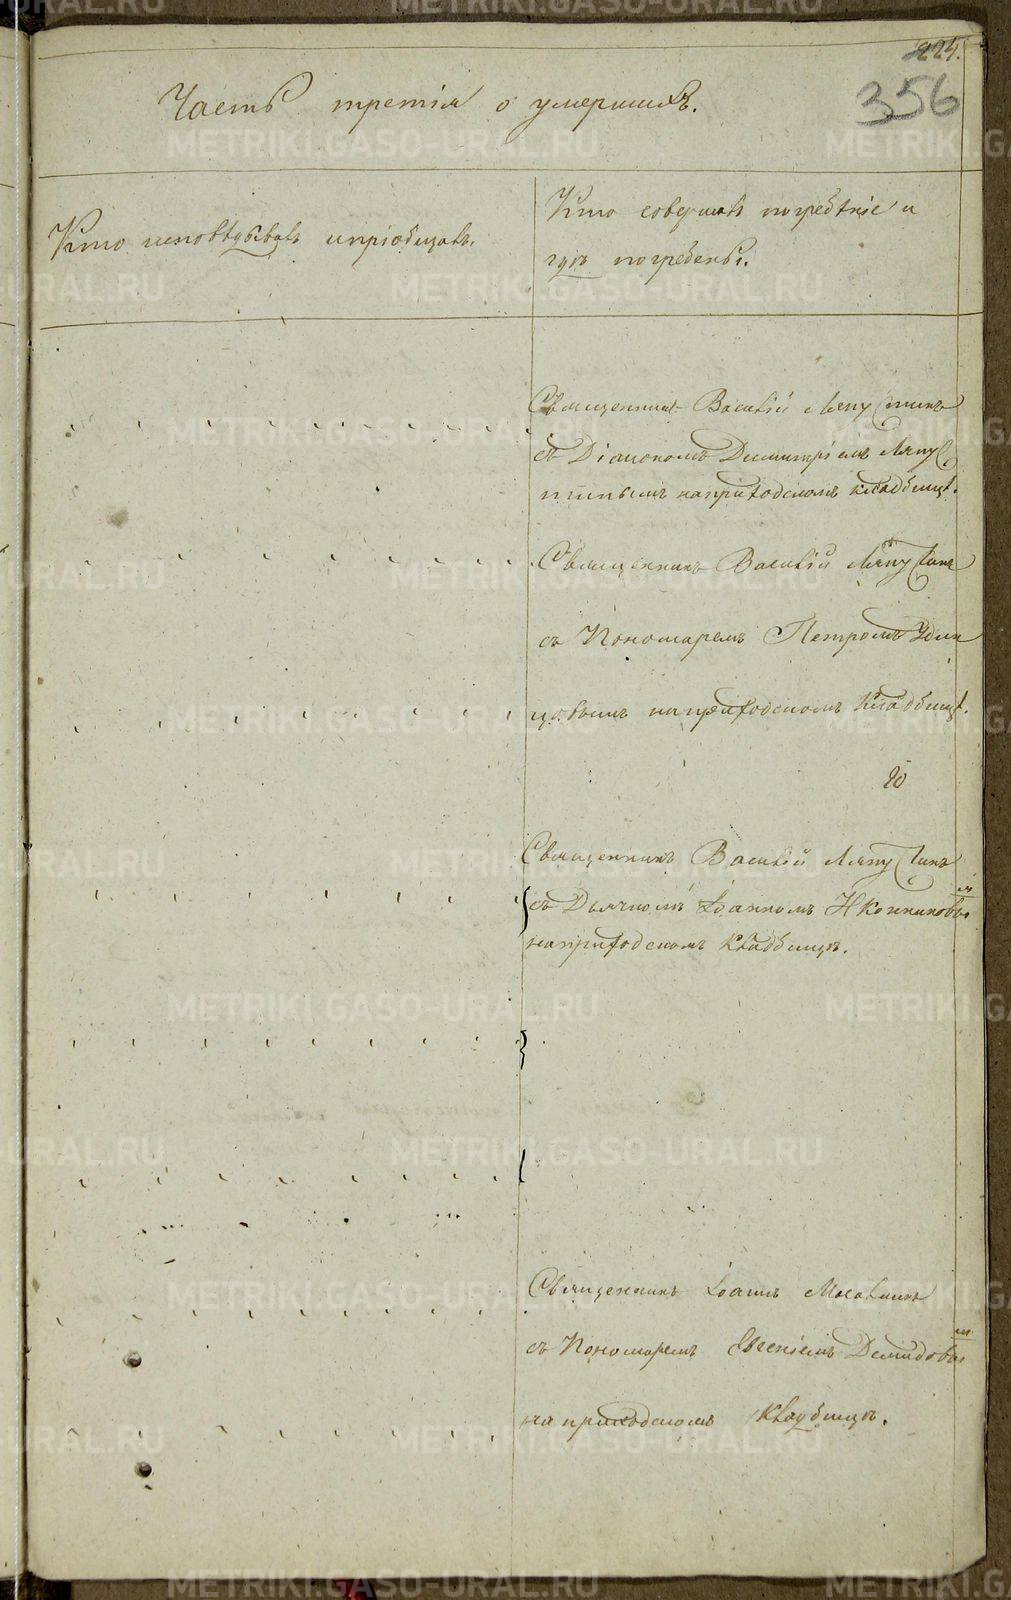 224.
356
Часть третія о умершихъ.
Кто исповѣдывалъ и пріобщалъ.
Кто совершалъ погребеніе и
гдѣ погребены.
Священникъ Василій Ляпустинъ
съ Діакономъ Димитріемъ Ляпус
тинымъ на приходскомъ кладбищѣ.
Священникъ Василій Ляпустинъ
съ Пономаремъ Петромъ Удин
цовымъ на приходскомъ кладбищѣ.
Священникъ Василій Ляпустинъ
съ Дьячкомъ Іоанномъ Иконниковым
на приходскомъ кладбищѣ.
Священникъ Іоаннъ
съ Пономаремъ Евгеніемъ Демидовым
на приходскомъ кладбищѣ.
METRIKI.GASO-URAL.RU